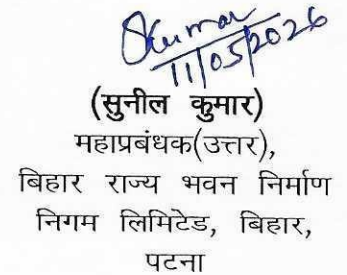 Skumar
11/05/2026
(सुनील कुमार)
महाप्रबंधक(उत्तर),
बिहार राज्य भवन निर्माण
निगम लिमिटेड, बिहार,
पटना